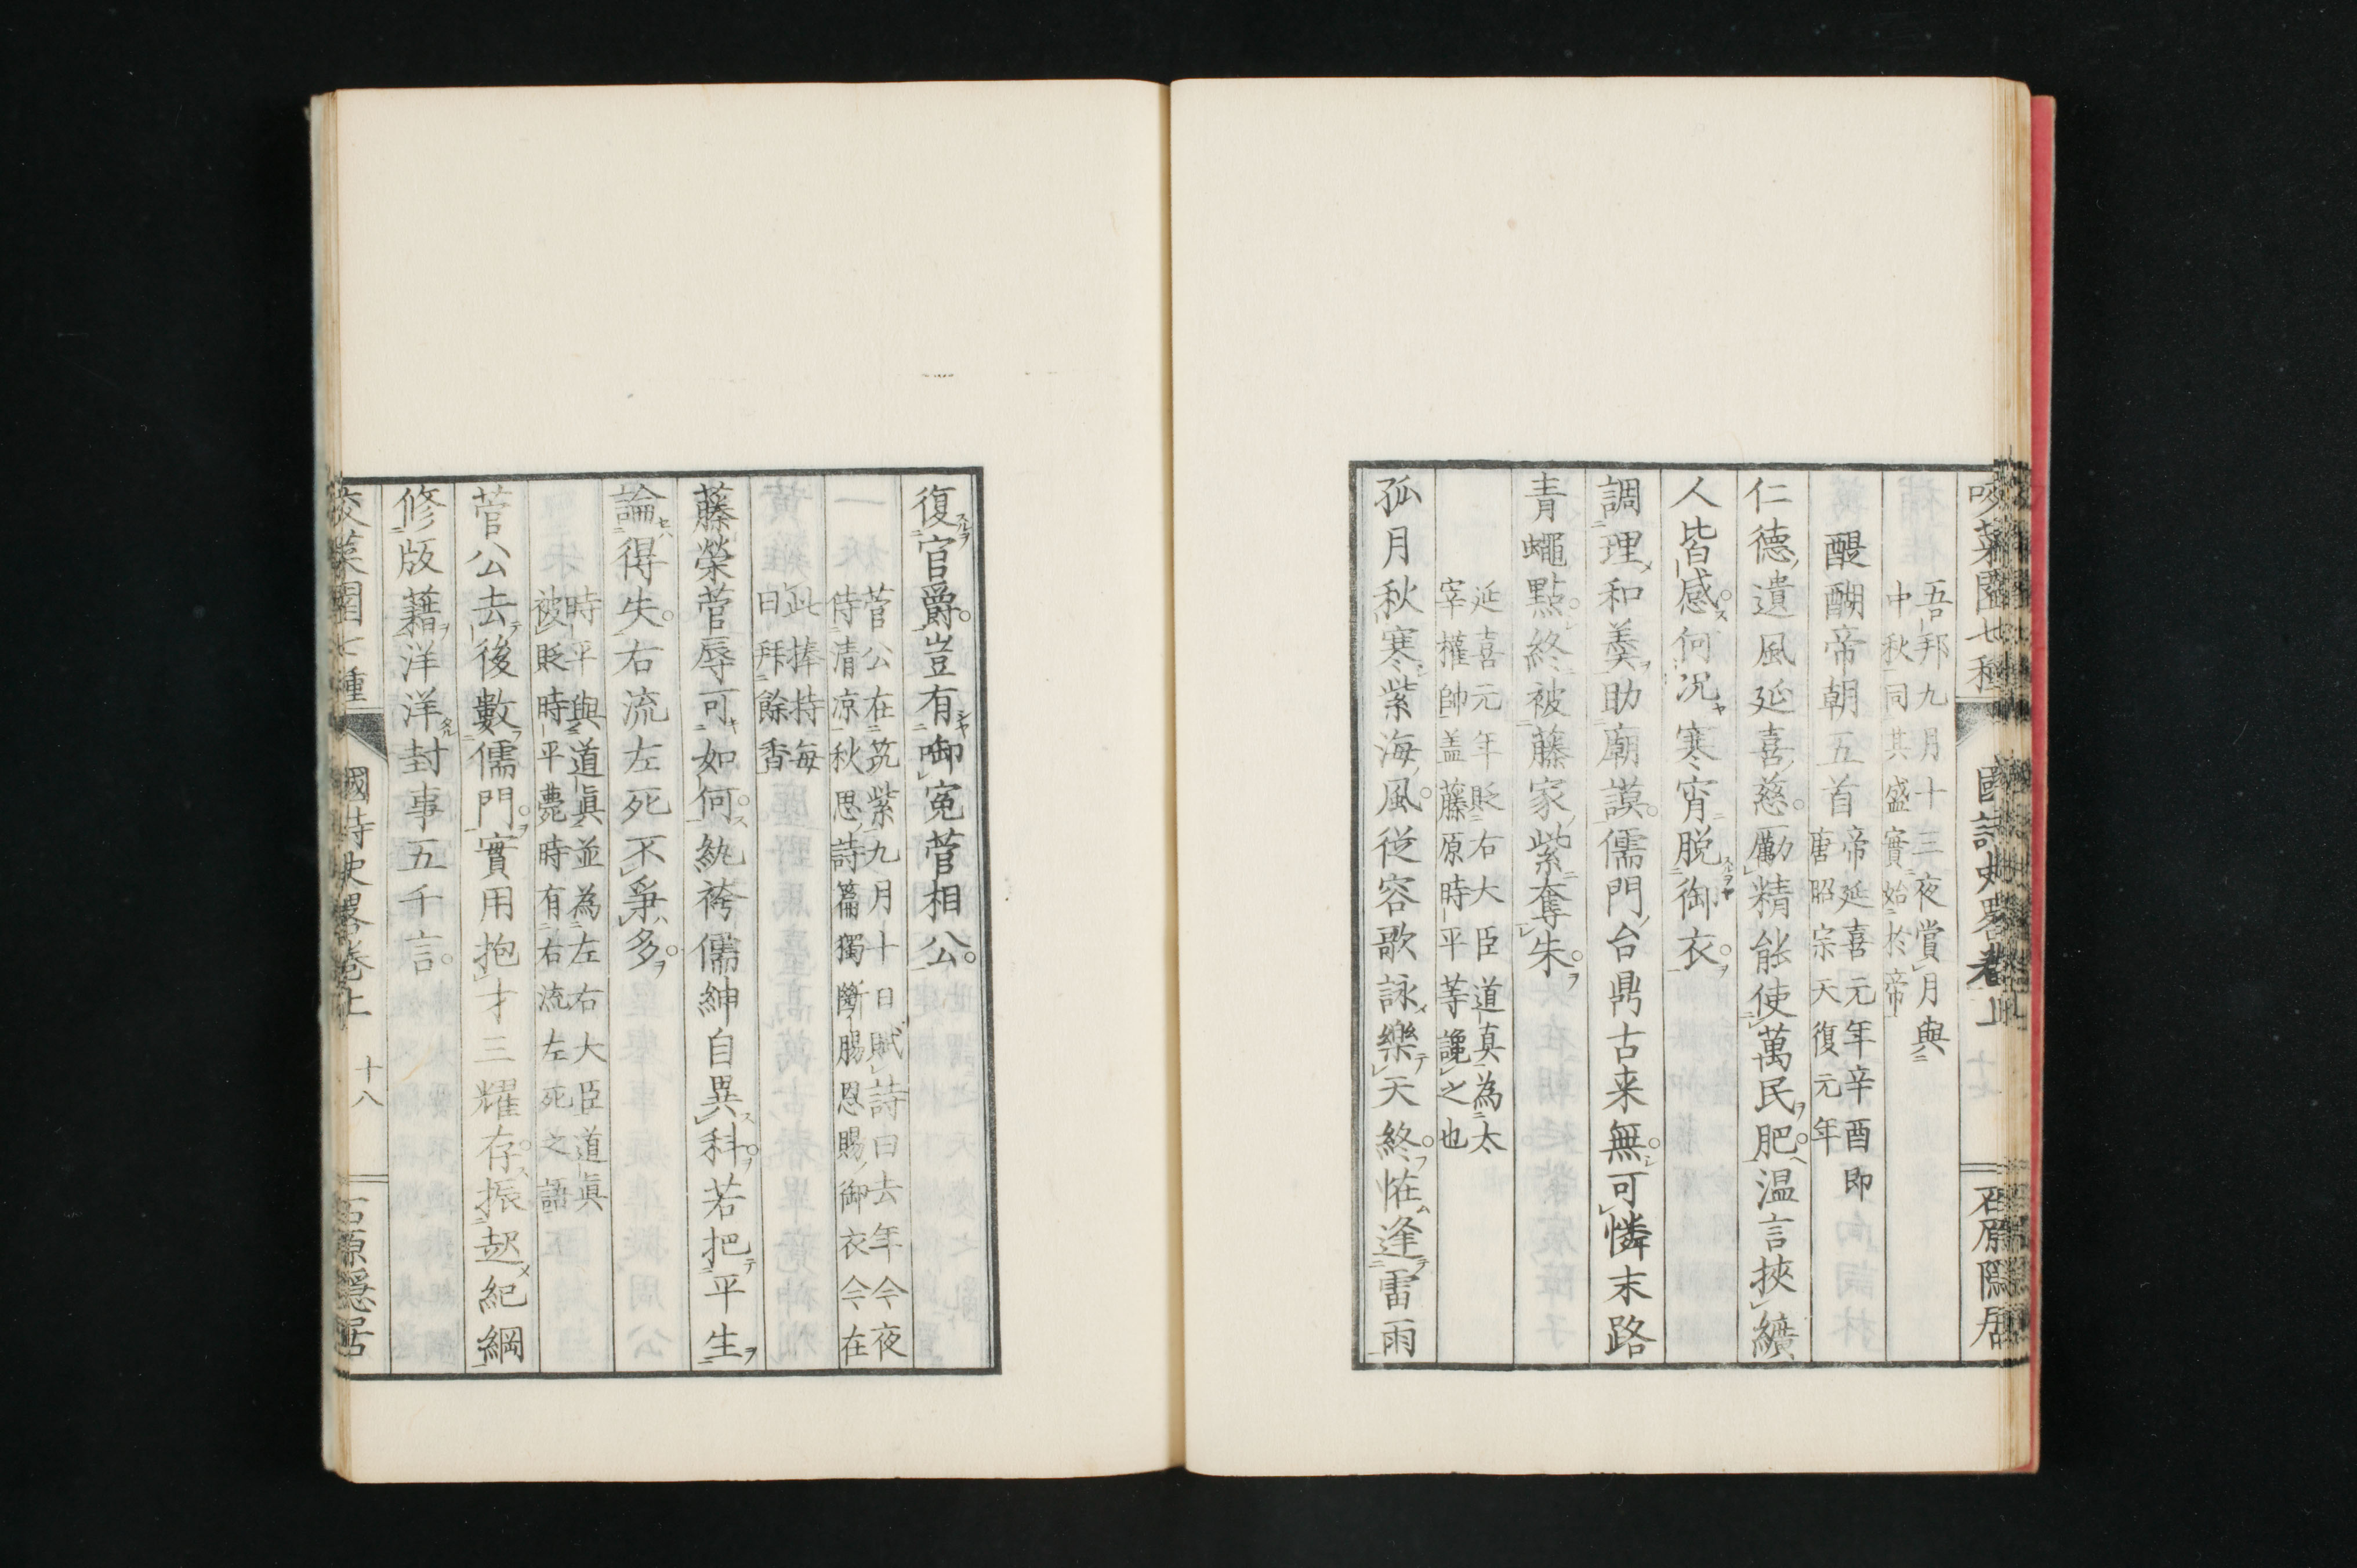 咬菜園七種 國詩史畧卷上 石原隱居
吾邦九月十三夜賞月與
中秋同其盛實始於帝
醍醐帝朝五首
帝延喜元年辛酉即
唐昭宗天復元年
仁德遺風延喜慈勵精能使萬民肥温言挾纊
人皆感何況寒宵脱御衣
調理和羹助廟謨儒門台鼎古来無可憐末路
青蠅點終被藤家紫奪朱
延喜元年貶右大臣道真為太
宰權帥盖藤原時平等讒之也
孤月秋寒紫海風従容歌詠樂天終恠逢雷雨
復官爵豈有啣寃菅相公
菅公在筑紫九月十日賦詩曰去年今夜
侍清凉秋思詩篇獨斷膓恩賜御衣今在
此捧持毎
日拜餘香
藤榮菅辱可如何紈袴儒紳自異科若把平生
論得失右流左死不爭多
時平與道眞並為左右大臣道眞
被貶時平薨時有右流左死之語
菅公去後數儒門實用抱才三耀存振起紀綱
修版藉洋洋封事五千言
咬菜園七種 國詩史畧卷上 十八 石原隱居